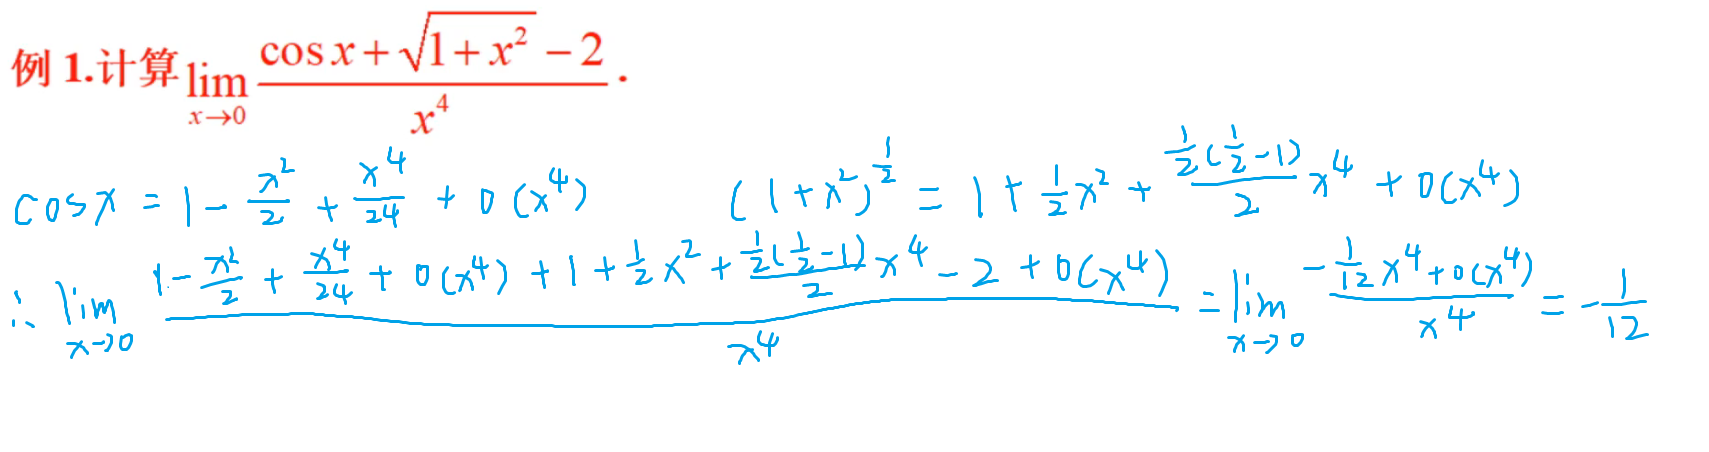 例 1.计算 lim_{x→0} (cos x + √(1 + x²) − 2) / x⁴ .
cosx = 1 − x²/2 + x⁴/24 + o(x⁴)    (1 + x²)^{1/2} = 1 + 1/2 x² + (1/2(1/2 − 1))/2 x⁴ + o(x⁴)
∴ lim_{x→0} (1 − x²/2 + x⁴/24 + o(x⁴) + 1 + 1/2 x² + (1/2(1/2 − 1))/2 x⁴ − 2 + o(x⁴)) / x⁴ = lim_{x→0} (−1/12 x⁴ + o(x⁴)) / x⁴ = −1/12